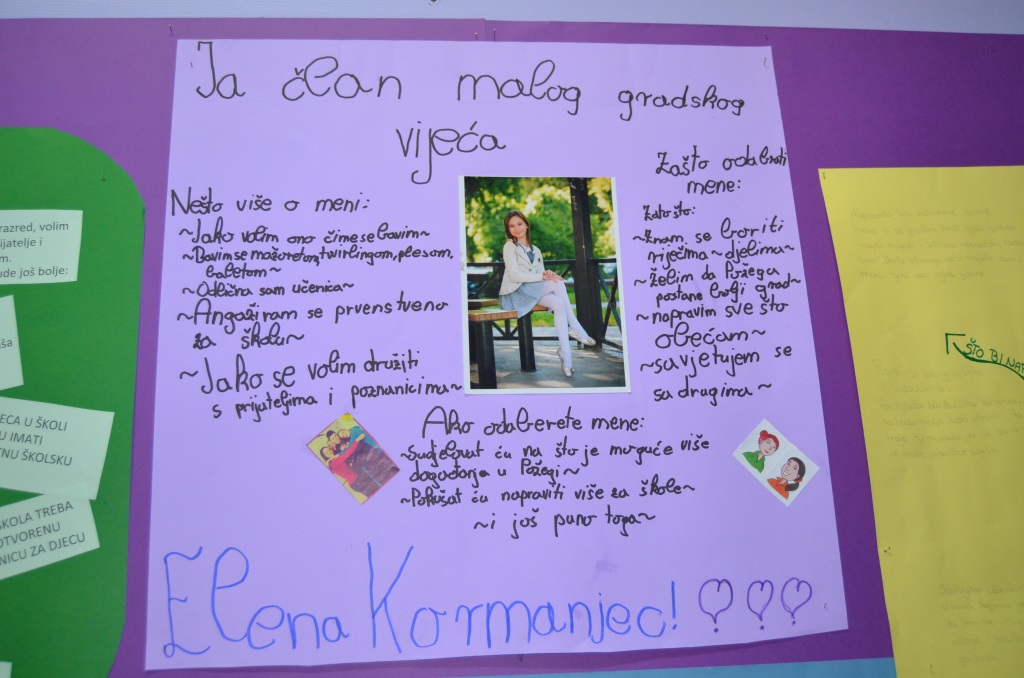 Ja član malog gradskog
vijeća
Nešto više o meni:
~Jako volim ono čime se bavim~
~Bavim se mažoretom, twirlingom, plesom,
baletom~
~Odlična sam učenica~
~Angažiram se prvenstveno
za školu~
~Jako se volim družiti
s prijateljima i poznanicima~
Zašto odabrati
mene:
Zato što:
~Znam se boriti
riječima~djelima~
~Želim da Požega
postane bolji grad~
~napravim sve što
obećam~
~savjetujem se
sa drugima~
Ako odaberete mene:
~Sudjelovat ću na što je moguće više
događanja u Požegi~
~Pokušat ću napraviti više za škole~
~i još puno toga~
Elena Kormanjec!
razred, volim
ijatelje i
m.
ude još bolje:
ECA U ŠKOLI
U IMATI
TNU ŠKOLSKU
KOLA TREBA
OTVORENU
NICU ZA DJECU
ŠTO BI NAP